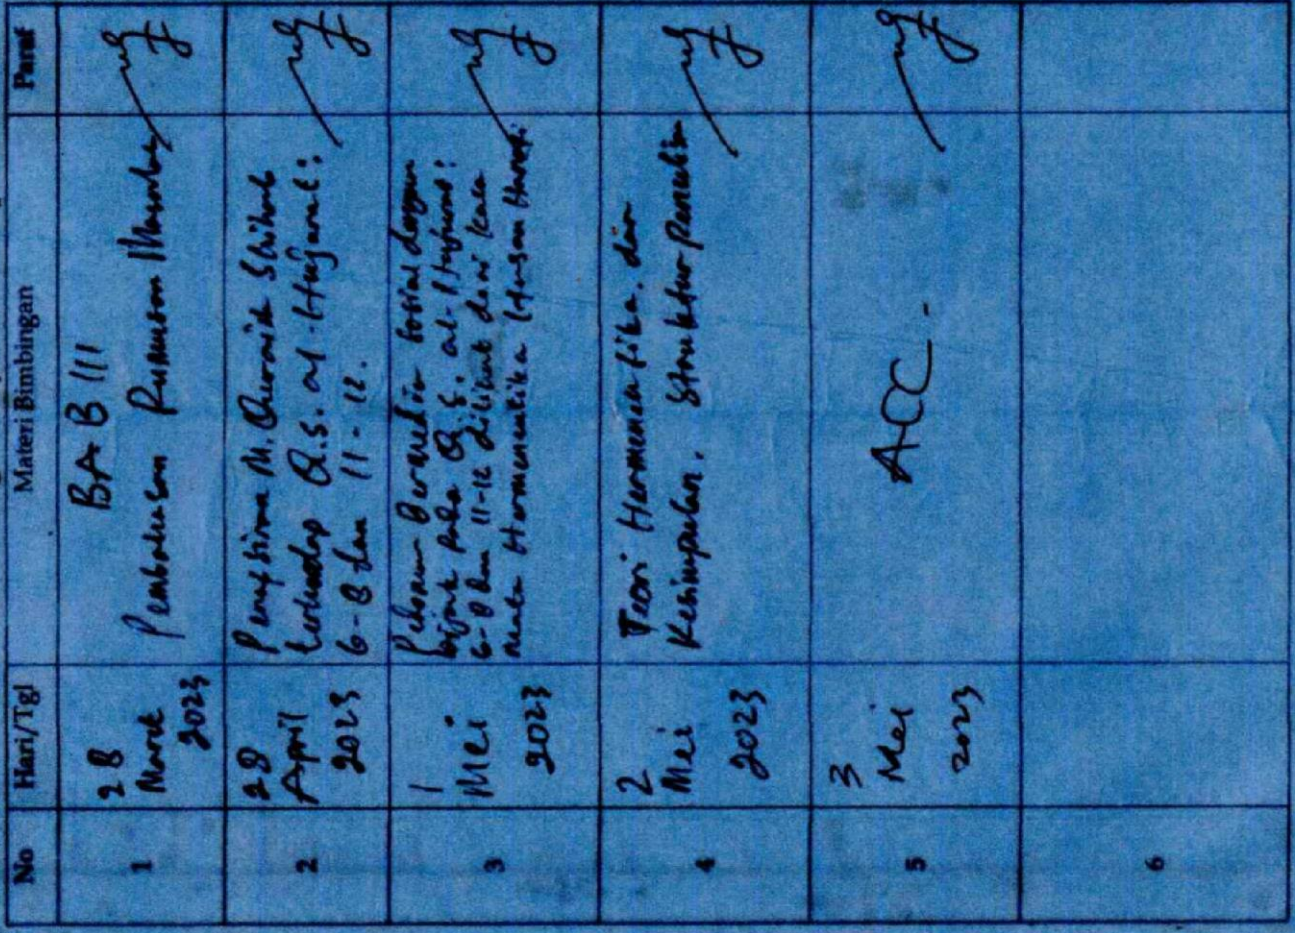 No Hari/Tgl Materi Bimbingan Paraf
1
28
Maret
2023
BAB III
Pembahasan Rumusan Masalah
2
28
April
2023
Penafsiran M. Quraish Shihab
terhadap Q.S. al-Hujurat:
6-8 dan 11-12.
3
1
Mei
2023
sosial dengan
bijak pada Q.S. al-Hujurat:
6-8 dan 11-12 dilihat dari kaca
mata Hermeneutika Hassan Hanafi
4
2
Mei
2023
Teori Hermeneutika. dan
Kesimpulan. Struktur Penulisan
5
3
Mei
2023
ACC.
6